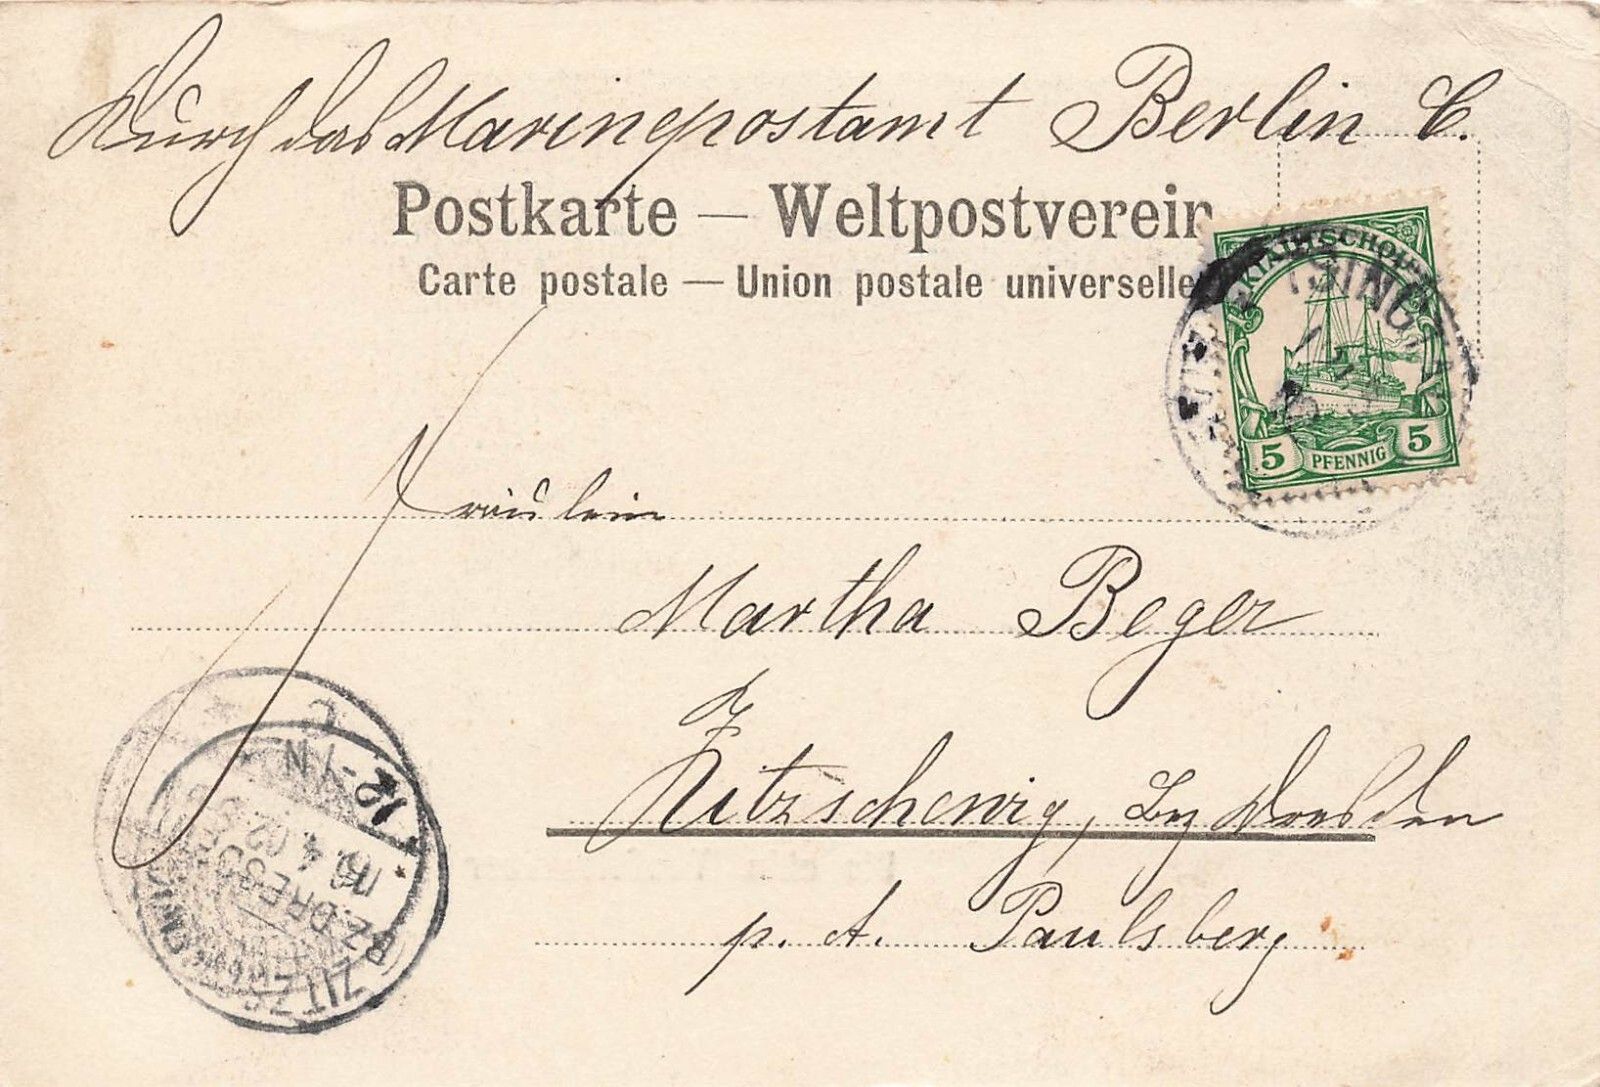 Durch das Marinepostamt Berlin C.
Postkarte — Weltpostverein
Carte postale — Union postale universelle
KIAUTSCHOU
TSINGTAU
5 PFENNIG 5
Fräulein
Martha Beger
Zitzschewig, Bz Dresden
p. A. Paulsberg
C
12-1 N
4.02.
BZ. DRESD
ZITZSCHEWIG